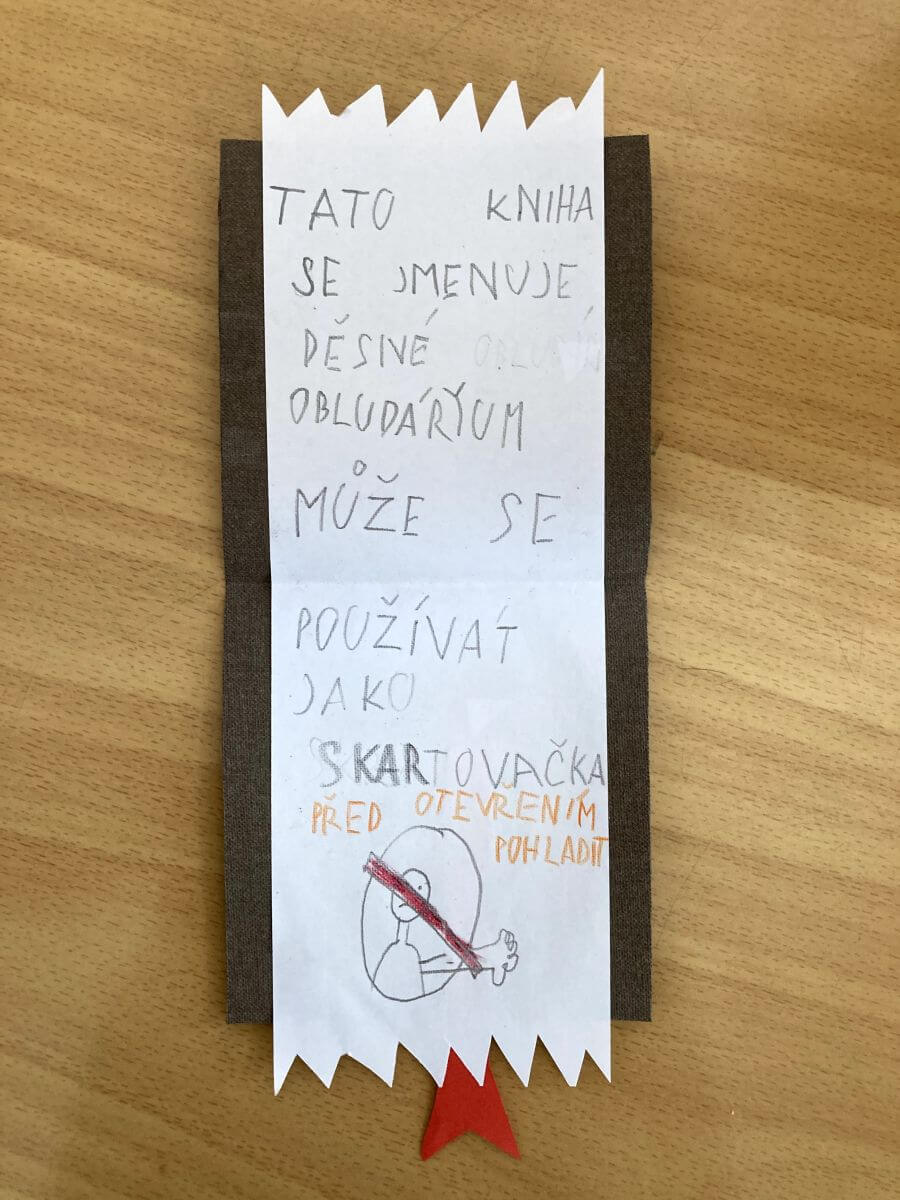 TATO KNIHA
SE JMENUJE
DĚSIVÉ
OBLUDÁRYUM
MŮŽE SE
POUŽÍVAT
JAKO
SKARTOVAČKA
PŘED OTEVŘENÍM
POHLADIT